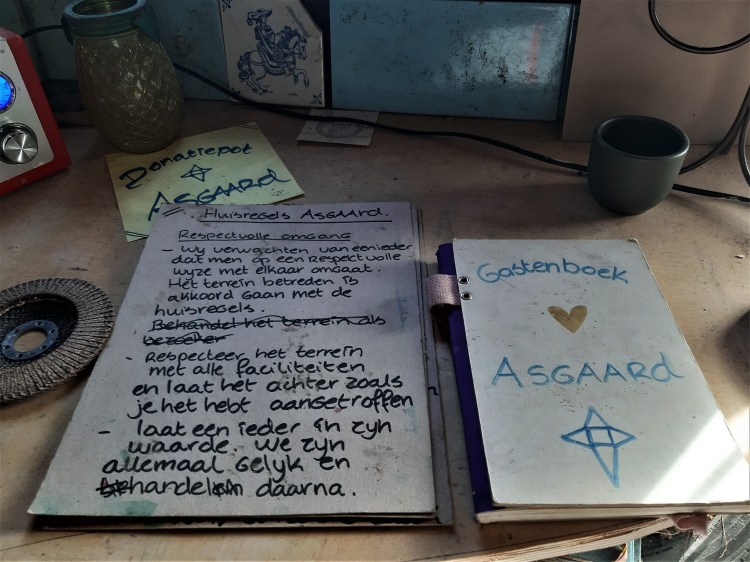 Donatiepot
ASGAARD
= Huisregels ASGAARD.
Respectvolle omgang
- Wy verwachten van eenieder
dat men op een Respectvolle
wyze met elkaar omgaat.
Het terrein betreden is
akkoord gaan met de
huisregels.
Behandel het terrein als
bezoeker
- Respecteer het terrein
met alle faciliteiten
en laat het achter zoals
je het hebt aangetroffen
- laat een ieder in zyn
waarde. We zyn
allemaal gelyk en
handelen daarna.
Gastenboek
ASGAARD